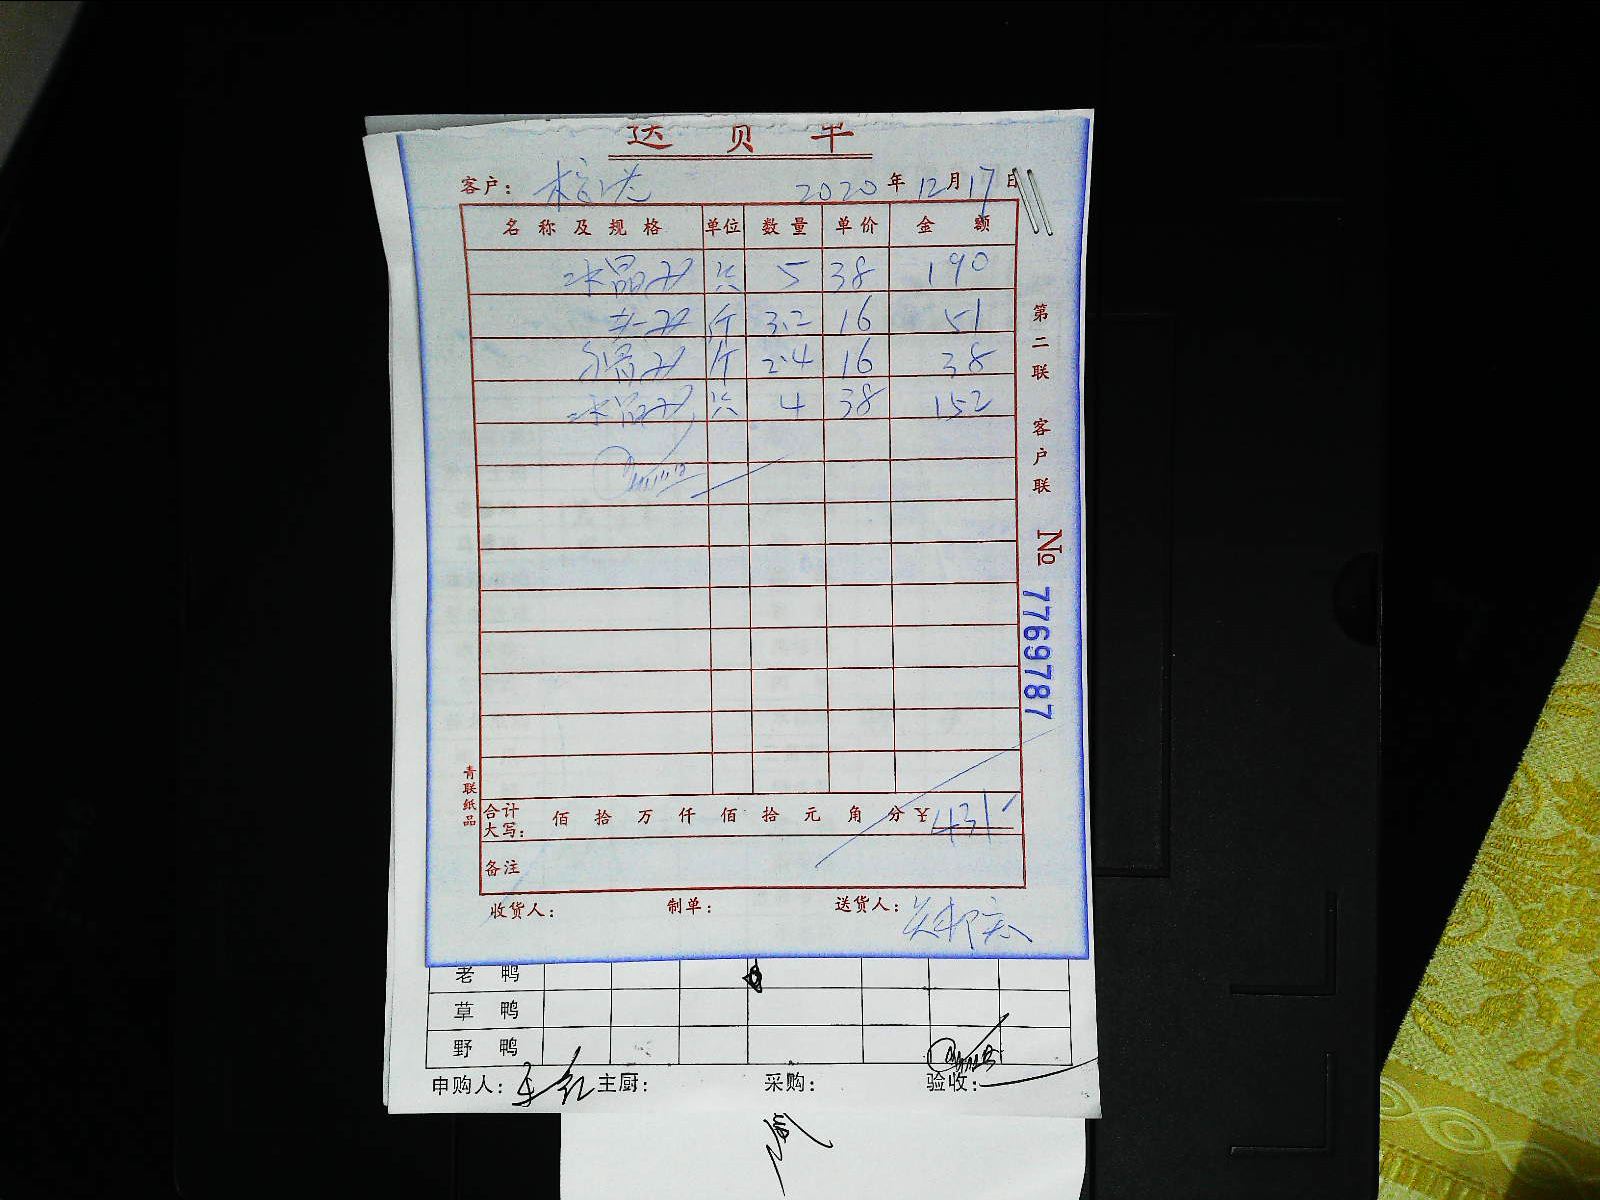 送货单
客户： 2020年12月17日
名称及规格 单位 数量 单价 金额
冰晶 5 38 190
斤 3.2 16 51
斤 2.4 16 38
冰晶 4 38 152
第二联 客户联
No 7769787
青联纸品
合计大写： 佰 拾 万 仟 佰 拾 元 角 分 ¥431
备注
收货人： 制单： 送货人：
老鸭
草鸭
野鸭
申购人： 主厨： 采购： 验收：